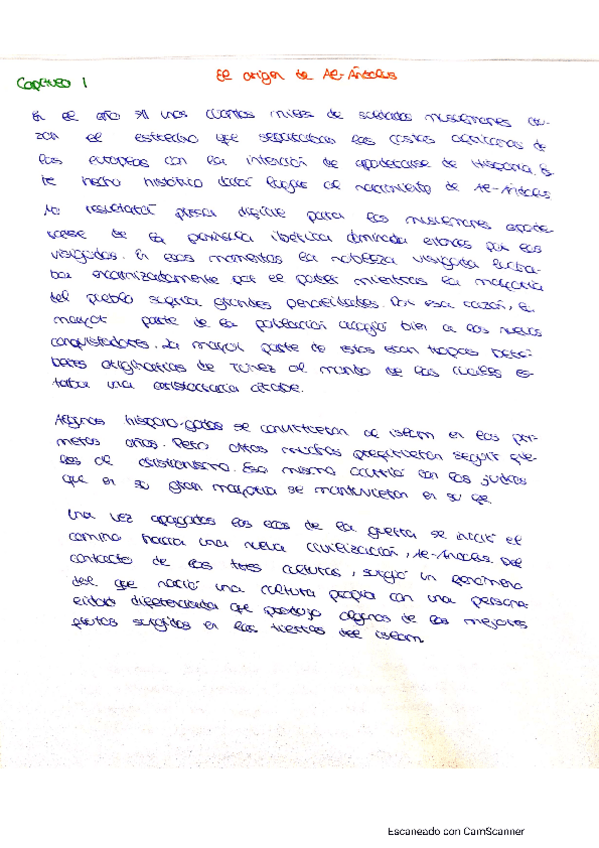 Capítulo 1
El origen de Al-Ándalus
En el año 711 unos cuantos miles de soldados musulmanes cru-
zan el estrecho que separaba las costas africanas de
las europeas con la intención de apoderarse de Hispania. Es-
te hecho histórico dará lugar al nacimiento de Al-Ándalus
No resultará difícil para los musulmanes apode-
rarse de la península ibérica dominada entonces por los
visigodos. En esos momentos la nobleza visigoda lucha-
ba encarnizadamente por el poder mientras la mayoría
del pueblo sufría grandes penalidades. Por esa razón, la
mayor parte de la población acogió bien a los nuevos
conquistadores. La mayor parte de estos eran tropas bere-
beres originarias de Túnez al mando de las cuales es-
taba una aristocracia árabe.
Algunos hispano-godos se convirtieron al islam en los pri-
meros años. Pero otros muchos prefirieron seguir fie-
les al cristianismo. Eso mismo ocurrió con los judíos
que en su gran mayoría se mantuvieron en su fe.
Una vez apagados los ecos de la guerra se inició el
camino hacia una nueva civilización, Al-Ándalus. Del
contacto de las tres culturas, surgió un fenómeno
del que nació una cultura propia con una persona-
lidad diferenciada que produjo algunos de los mejores
frutos surgidos en las tierras del islam.
Escaneado con CamScanner